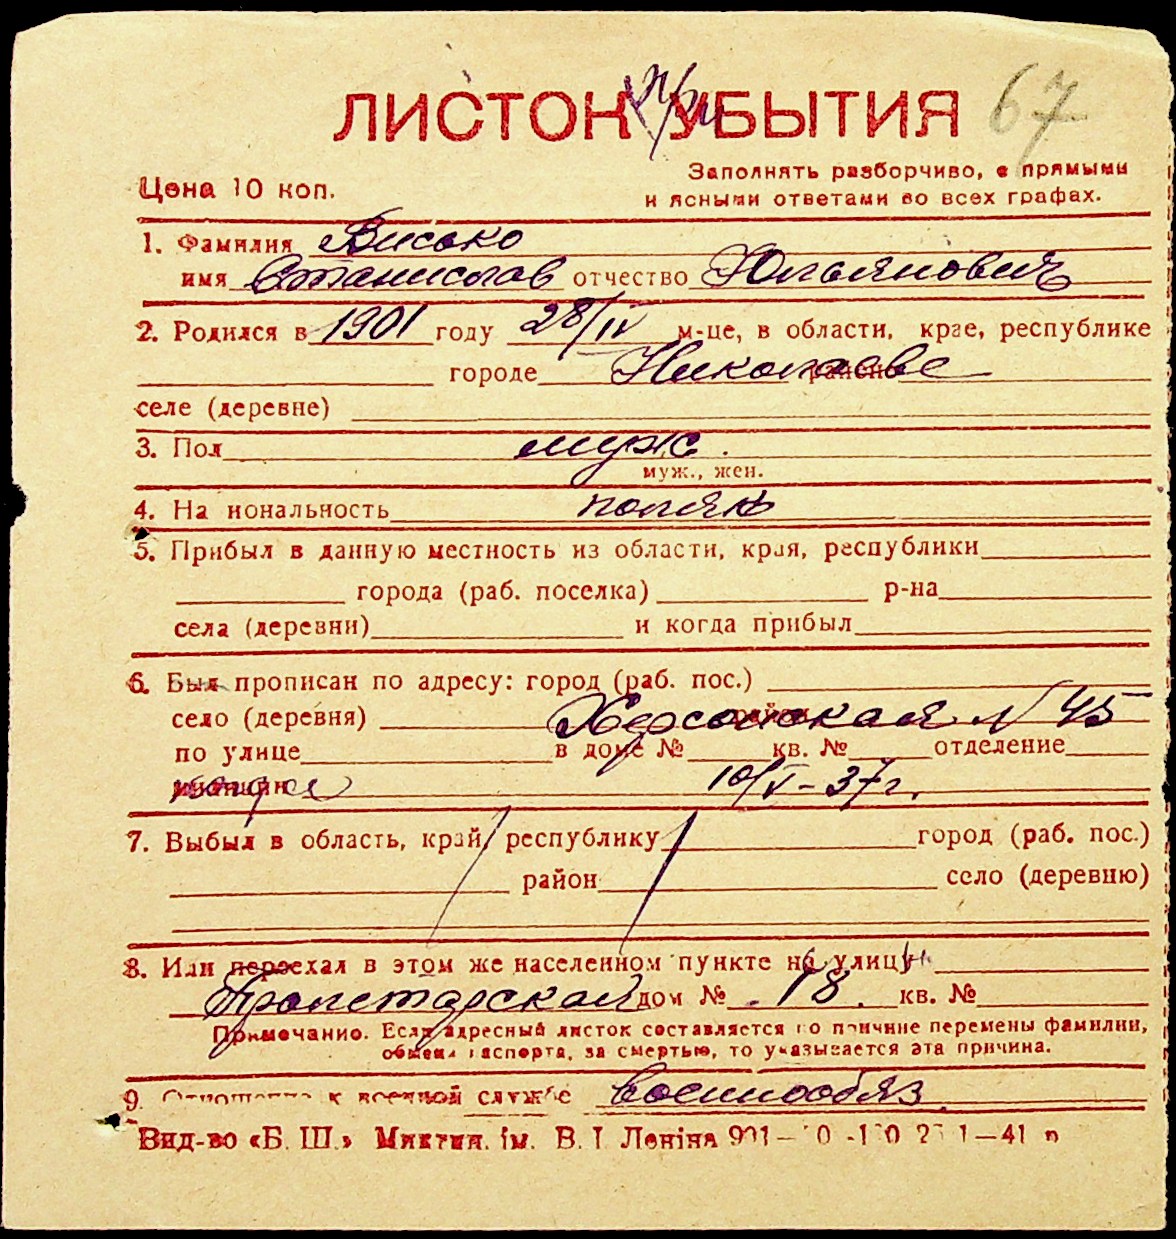 ЛИСТОК УБЫТИЯ 67
При
Цена 10 коп.
Заполнять разборчиво, с прямыми
и ясными ответами во всех графах.
1. Фамилия Високо
имя Станислав отчество Юльянович
2. Родился в 1901 году 28/IV м-це, в области, крае, республике
городе Николаеве
селе (деревне)
3. Пол муж.
муж., жен.
4. На иональность поляк
5. Прибыл в данную местность из области, края, республики
города (раб. поселка) р-на
села (деревни) и когда прибыл
6. Был прописан по адресу: город (раб. пос.)
село (деревня) Херсонская N 45
по улице в доме № кв. № отделение
10/V-37г.
7. Выбыл в область, край, республику город (раб. пос.)
район село (деревню)
8. Или переехал в этом же населенном пункте на улицу
Пролетарская дом № 18. кв. №
Примечание. Если адресный листок составляется по причине перемены фамилии,
обмена паспорта, за смертью, то указывается эта причина.
9. Отношение к военной службе военнообяз.
Вид-во «Б. Ш.» Миктип. ім. В. І. Леніна